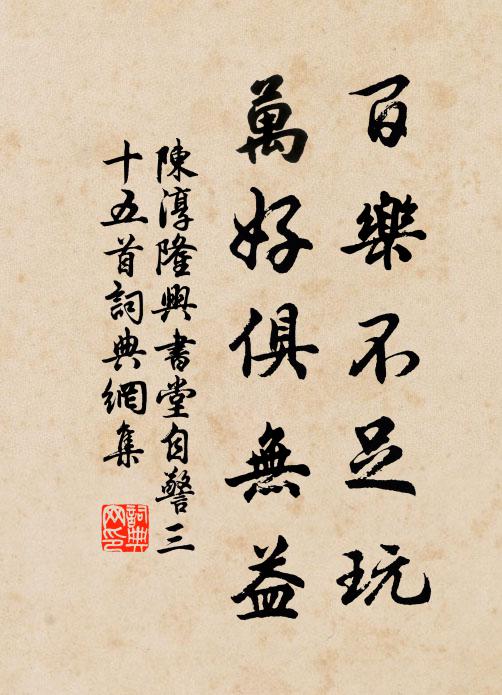 百樂不足玩
萬好俱無益
陳淳隆興書堂自警三
十五首詞典網集
詞典
网印